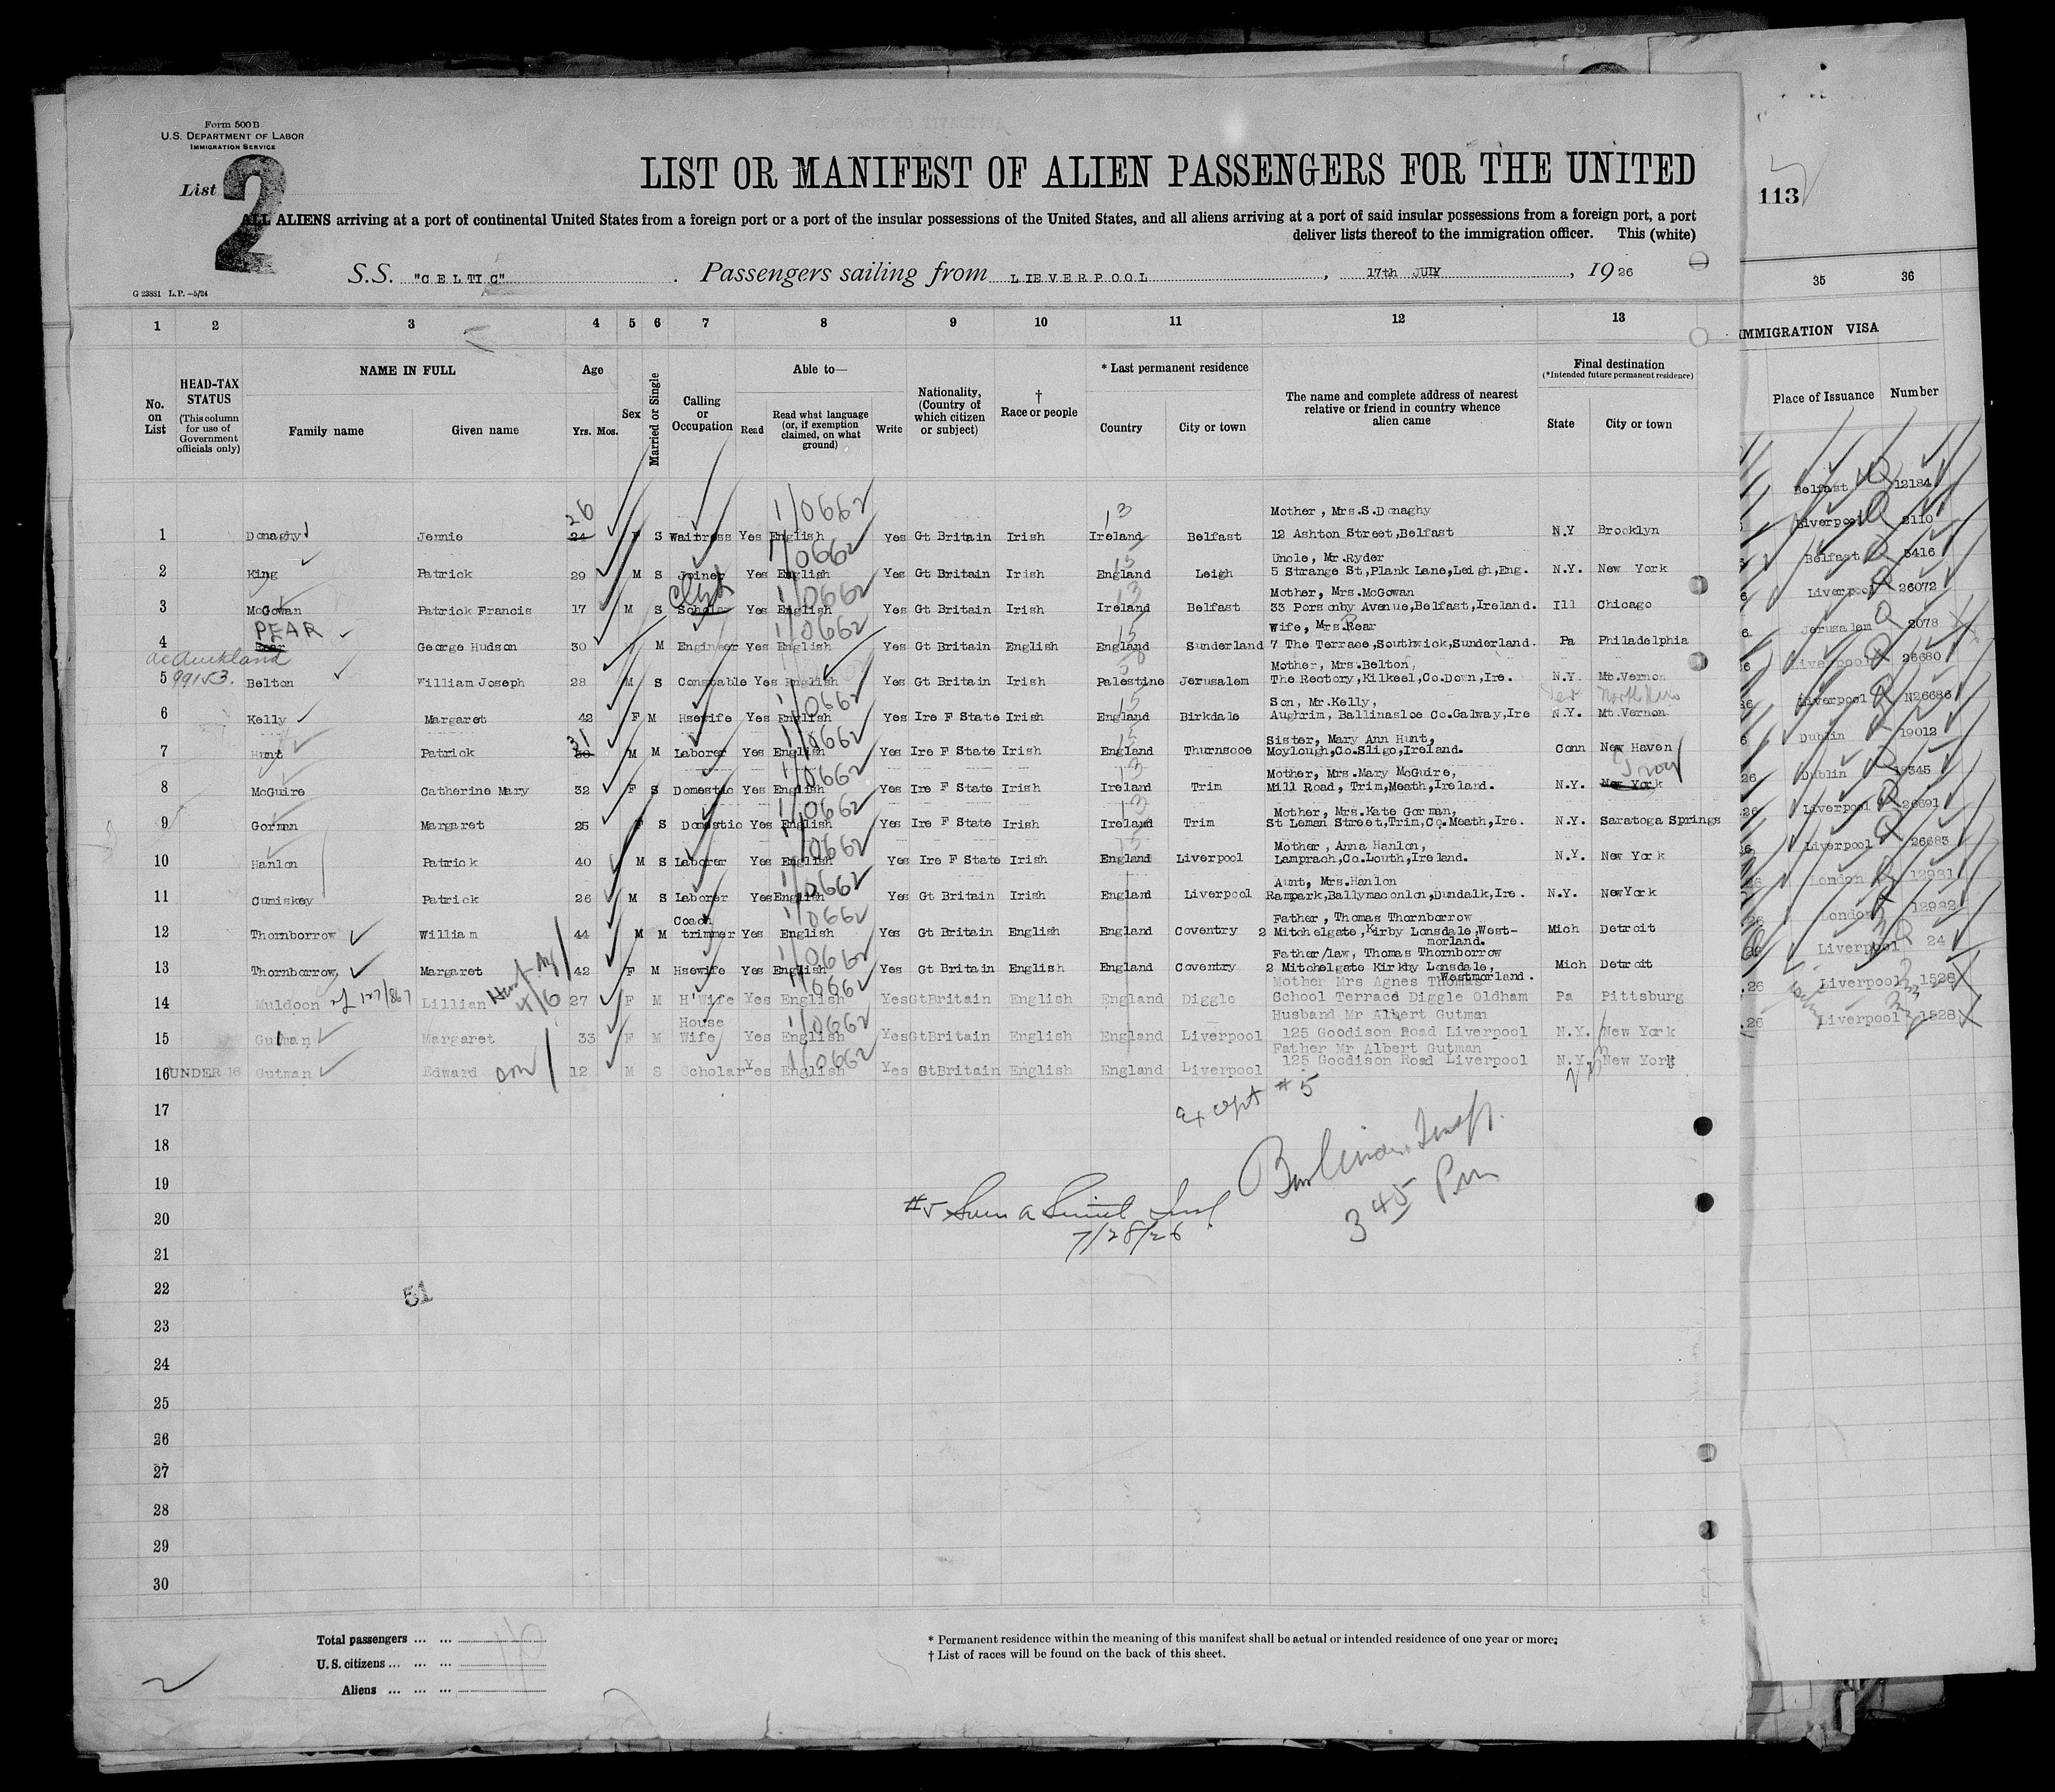 Form 500 B
U.S. DEPARTMENT OF LABOR
IMMIGRATION SERVICE
List 2
LIST OR MANIFEST OF ALIEN PASSENGERS FOR THE UNITED
113
ALL ALIENS arriving at a port of continental United States from a foreign port or a port of the insular possessions of the United States, and all aliens arriving at a port of said insular possessions from a foreign port, a port
deliver lists thereof to the immigration officer. This (white)
S.S. "CELTIC" . Passengers sailing from LIEVERPOOL , 17th JULY , 1926
G 23881 L.P. —5/24
1 2 3 4 5 6 7 8 9 10 11 12 13 35 36
No. on List
HEAD-TAX STATUS
(This column for use of Government officials only)
NAME IN FULL
Family name Given name
Age
Yrs. Mos.
Sex
Married or Single
Calling or Occupation
Able to—
Read
Read what language (or, if exemption claimed, on what ground)
Write
Nationality, (Country of which citizen or subject)
† Race or people
* Last permanent residence
Country City or town
The name and complete address of nearest relative or friend in country whence alien came
Final destination
(*Intended future permanent residence)
State City or town
IMMIGRATION VISA
Place of Issuance Number
26 1/0662 13 Mother, Mrs.S.Donaghy
1 Donaghy Jennie 24 F S Waitress Yes English Yes Gt Britain Irish Ireland Belfast 12 Ashton Street,Belfast N.Y Brooklyn
1/0662 15 Uncle, Mr.Ryder
2 King Patrick 29 M S Joiner Yes English Yes Gt Britain Irish England Leigh 5 Strange St,Plank Lane,Leigh,Eng. N.Y. New York
Clerk 1/0662 13 Mother, Mrs.McGowan
3 McGowan Patrick Francis 17 M S Scholar Yes English Yes Gt Britain Irish Ireland Belfast 33 Ponsonby Avenue,Belfast,Ireland. Ill Chicago
PEAR 1/0662 15 Wife, Mrs.Pear
4 George Hudson 30 M Engineer Yes English Yes Gt Britain English England Sunderland 7 The Terrace,Southwick,Sunderland. Pa Philadelphia
Auckland Mother, Mrs.Belton,
5 99153. Belton William Joseph 28 M S Constable Yes English Yes Gt Britain Irish Palestine Jerusalem The Rectory,Kilkeel,Co.Down,Ire. N.Y. Mt.Vernon
1/0662 15 Son, Mr.Kelly,
6 Kelly Margaret 42 F M Hsewife Yes English Yes Ire F State Irish England Birkdale Aughrim, Ballinasloe Co.Galway,Ire N.Y. Mt.Vernon
31 1/0662 15 Sister, Mary Ann Hunt,
7 Hunt Patrick 30 M M Laborer Yes English Yes Ire F State Irish England Thurnscoe Moylough,Co.Sligo,Ireland. Conn New Haven
1/0662 13 Mother, Mrs.Mary McGuire, Troy
8 McGuire Catherine Mary 32 F S Domestic Yes English Yes Ire F State Irish Ireland Trim Mill Road, Trim,Meath,Ireland. N.Y. New York
1/0662 13 Mother, Mrs.Kate Gorman,
9 Gorman Margaret 25 F S Domestic Yes English Yes Ire F State Irish Ireland Trim St Leman Street,Trim,Co.Meath,Ire. N.Y. Saratoga Springs
1/0662 15 Mother, Anna Hanlon,
10 Hanlon Patrick 40 M S Laborer Yes English Yes Ire F State Irish England Liverpool Lamprach,Co.Louth,Ireland. N.Y. New York
1/0662 Aunt, Mrs.Hanlon
11 Cumiskey Patrick 26 M S Laborer Yes English Yes Gt Britain Irish England Liverpool Rampark,Ballymaconlon,Dundalk,Ire. N.Y. NewYork
Coach 1/0662 Father, Thomas Thornborrow
12 Thornborrow William 44 M M trimmer Yes English Yes Gt Britain English England Coventry 2 Mitchelgate,Kirby Lonsdale,West-
morland. Mich Detroit
1/0662 Father/law, Thomas Thornborrow
13 Thornborrow Margaret 42 F M Hsewife Yes English Yes Gt Britain English England Coventry 2 Mitchelgate Kirkby Lonsdale,
Westmorland. Mich Detroit
1/0662 Mother Mrs Agnes Thomas
14 Muldoon Lillian 27 F M H'Wife Yes English Yes GtBritain English England Diggle School Terrace Diggle Oldham Pa Pittsburg
House 1/0662 Husband Mr Albert Gutman
15 Gutman Margaret 33 F M Wife Yes English Yes GtBritain English England Liverpool 125 Goodison Road Liverpool N.Y. New York
1/0662 Father Mr Albert Gutman
16 UNDER 16 Gutman Edward son 12 M S Scholar Yes English Yes GtBritain English England Liverpool 125 Goodison Road Liverpool N.Y. New York
Belfast 12184
Liverpool 2110
Belfast 5416
Liverpool 26072
Jerusalem 2078
Liverpool 26680
Liverpool N26686
Dublin 19012
Dublin 19345
Liverpool 26691
Liverpool 26683
London 12981
London 12982
Liverpool 24
Liverpool 1528
Liverpool 1528
17
Except #5
18
19
20
#5
3 45 Pm
7/28/26
21
22
51
23
24
25
26
27
28
29
30
Total passengers ... ...
U.S. citizens ... ... ...
Aliens ... ... ...
* Permanent residence within the meaning of this manifest shall be actual or intended residence of one year or more.
† List of races will be found on the back of this sheet.